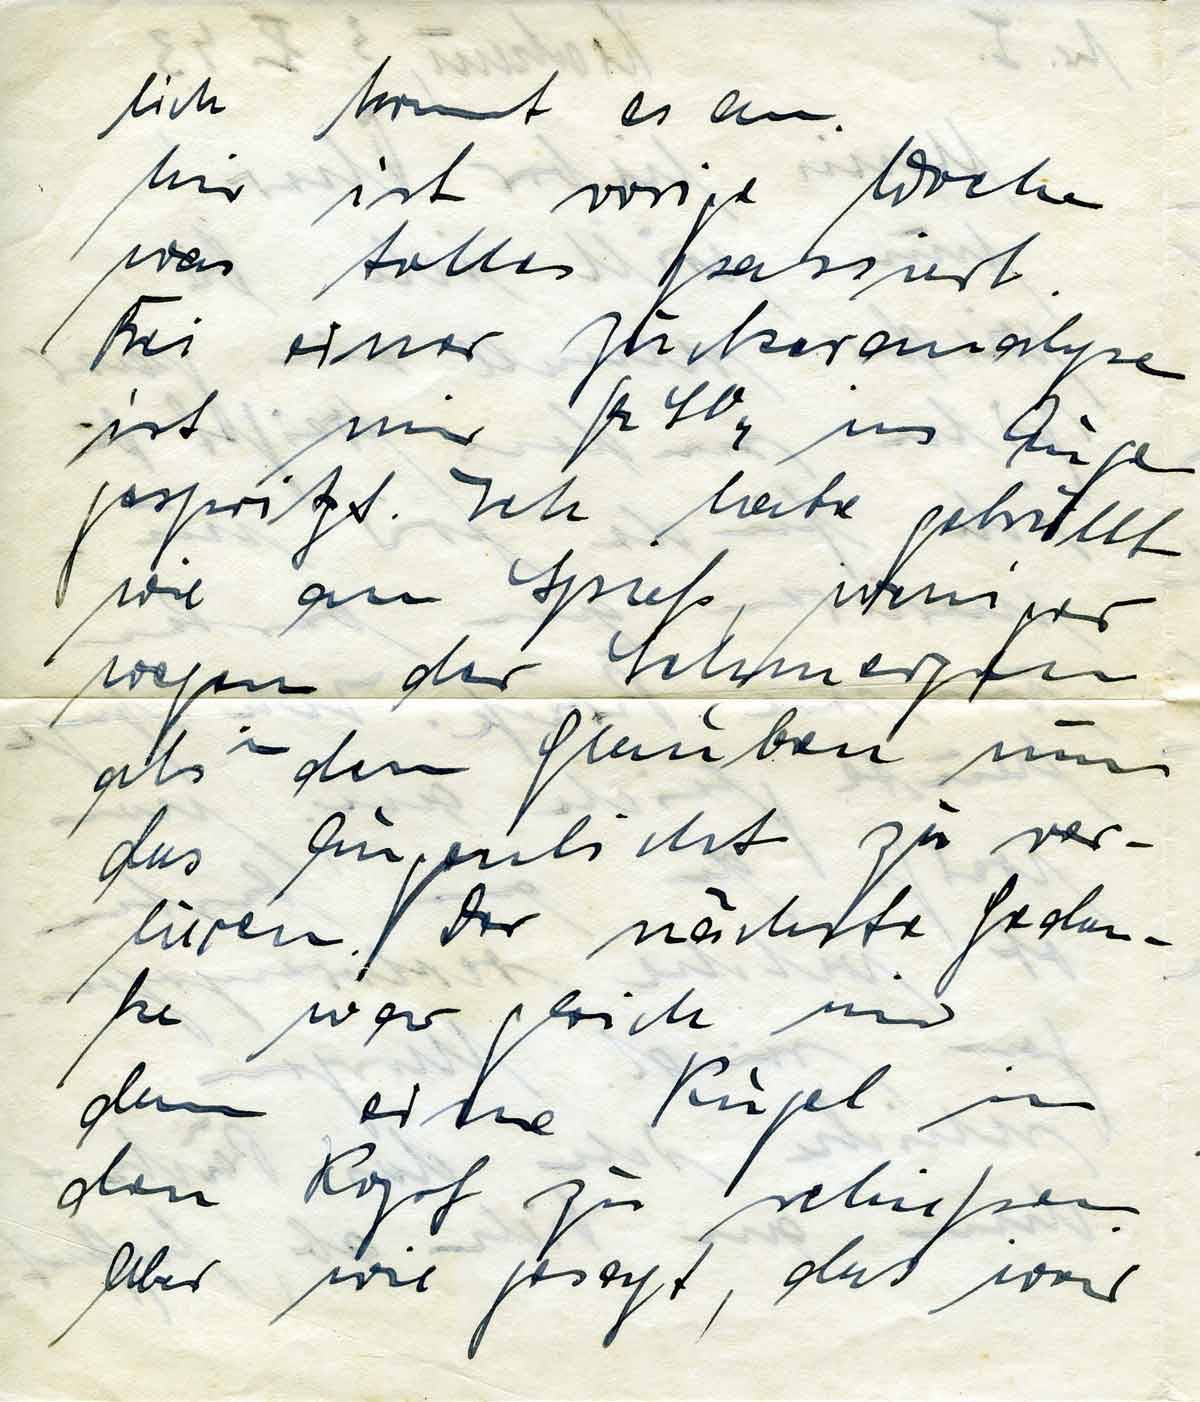 lich kommt es an.
Mir ist vorige Woche
was tolles passiert.
Bei einer Zuckeranalyse
ist mir H2SO4 ins Auge
gespritzt. Ich habe gebrüllt
wie am Spieß, weniger
wegen der Schmerzen
als in dem Glauben nun
das Augenlicht zu ver-
lieren. Der nächste Gedan-
ke war gleich mir
dann eine Kugel in
den Kopf zu schießen.
Aber wie gesagt, das war